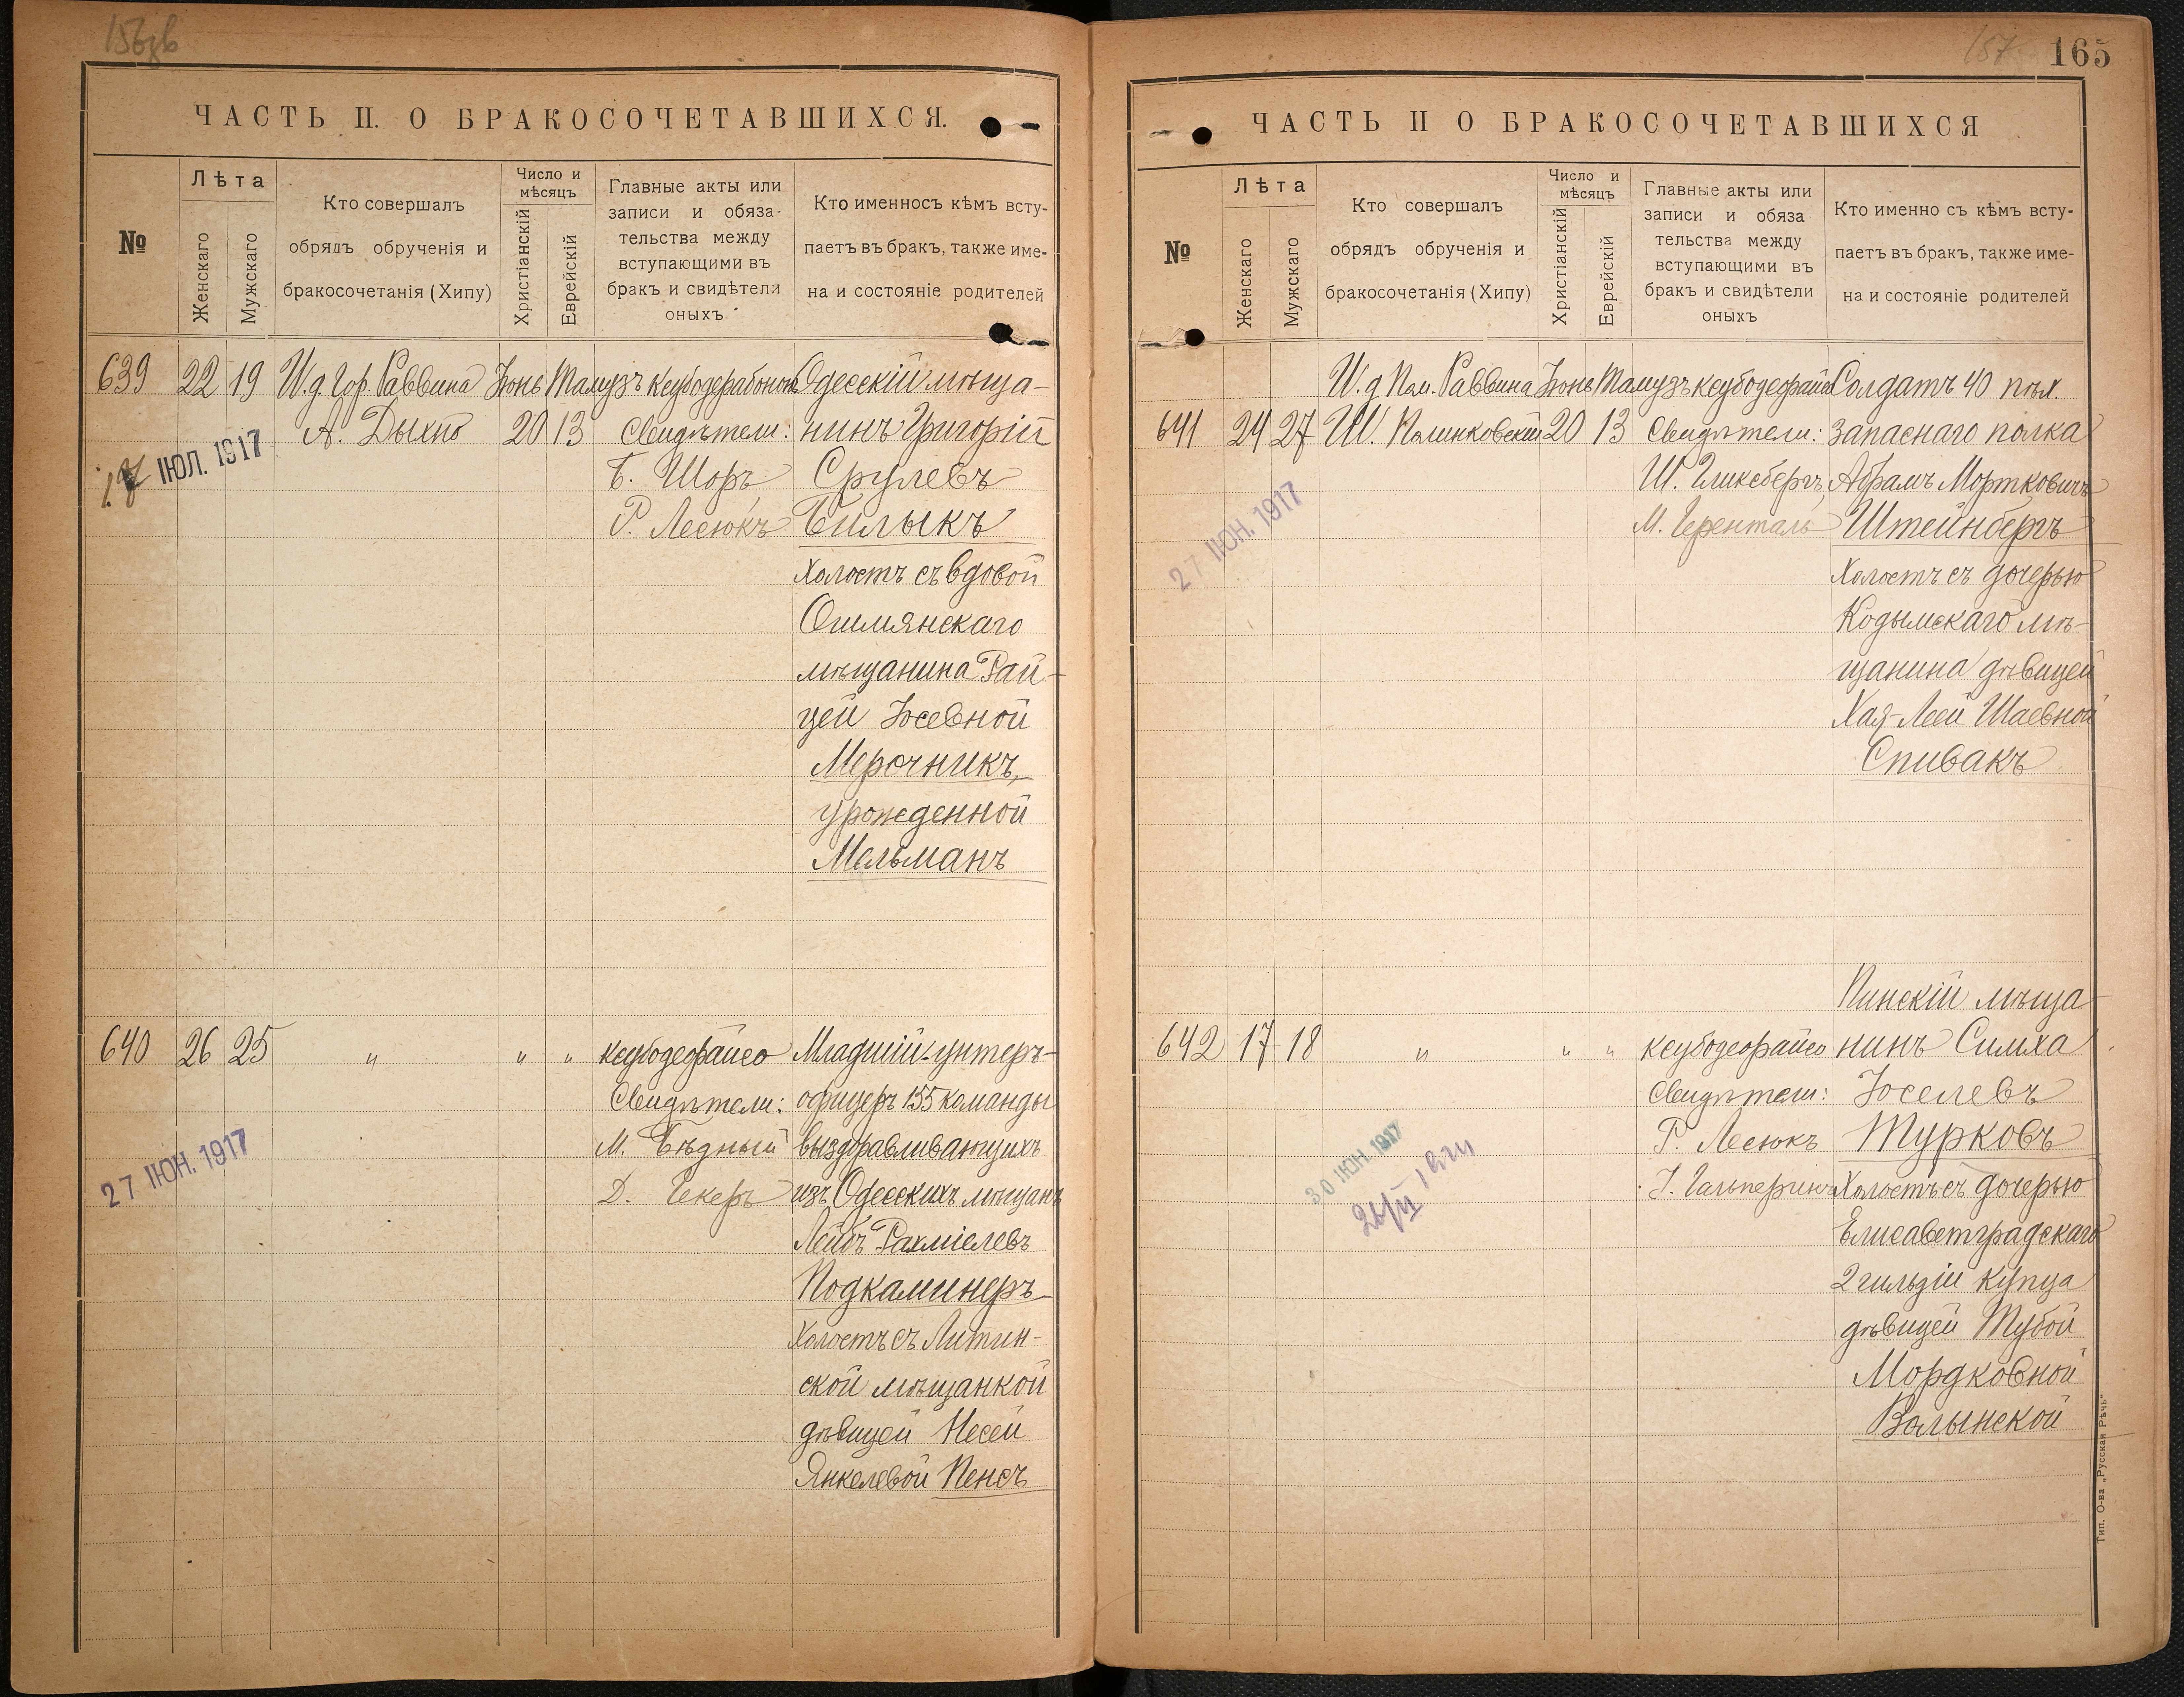 156зв
ЧАСТЬ II. О БРАКОСОЧЕТАВШИХСЯ.
№
Лѣта
Женскаго
Мужскаго
Кто совершалъ
обрядъ обрученія и
бракосочетанія (Хипу)
Число и
мѣсяцъ
Христіанскій
Еврейскій
Главные акты или
записи и обяза-
тельства между
вступающими въ
бракъ и свидѣтели
оныхъ
Кто именносъ кѣмъ всту-
паетъ въ бракъ, также име-
на и состояніе родителей
639 22 19 И.д. Гор. Раввина Іюнь Тамузъ Одесскій мѣща-
А. Дыхно 20 13 Свидѣтели: нинъ Григорій
ІЮЛ. 1917
Б. Шоръ Срулевъ
Р. Лесюкъ Билыкъ
холостъ съ вдовой
Ошмянскаго
мѣщанина Рай-
цей Іосевной
Мерочникъ,
урожденной
Мельманъ
640 26 25 " " " ксубодеорайсо Младшій унтеръ-
Свидѣтели: офицеръ 155 команды
27 ІЮН. 1917
М. Бѣдный выздоравливающихъ
Д. Чекеръ изъ Одесскихъ мѣщанъ
Лейбъ Рахміелевъ
Подкаминеръ
Холостъ съ Литин-
ской мѣщанкой
дѣвицей Несей
Янкелевой Пенсъ
157
165
ЧАСТЬ II О БРАКОСОЧЕТАВШИХСЯ
№
Лѣта
Женскаго
Мужскаго
Кто совершалъ
обрядъ обрученія и
бракосочетанія (Хипу)
Число и
мѣсяцъ
Христіанскій
Еврейскій
Главные акты или
записи и обяза
тельства между
вступающими въ
бракъ и свидѣтели
оныхъ
Кто именно съ кѣмъ всту-
паетъ въ бракъ, также име-
на и состояніе родителей
И.д Пом. Раввина Іюнь Тамузъ ксубодеорайсо Солдатъ 40 пѣх.
641 24 27 Ш. Полинковскій 20 13 Свидѣтели: запаснаго полка
Ш. Гликсбергъ, Абрамъ Мортковичъ
27 ІЮН. 1917
М. Геренталь Штейнбергъ
Холостъ съ дочерью
Кодымскаго мѣ-
щанина дѣвицей
Хая-Леей Шаевной
Спивакъ
Пинскій мѣща-
642 17 18 " " " ксубодеорайсо нинъ Симха
Свидѣтели: Іоселевъ
30 ІЮН. 1917
Р. Лесюкъ Турковъ
І. Гальперинъ Холостъ съ дочерью
Елисаветградскаго
2 гильдіи купца
дѣвицей Тубой
Мордковной
Волынской
Тип. О-ва „Русская Рѣчь"